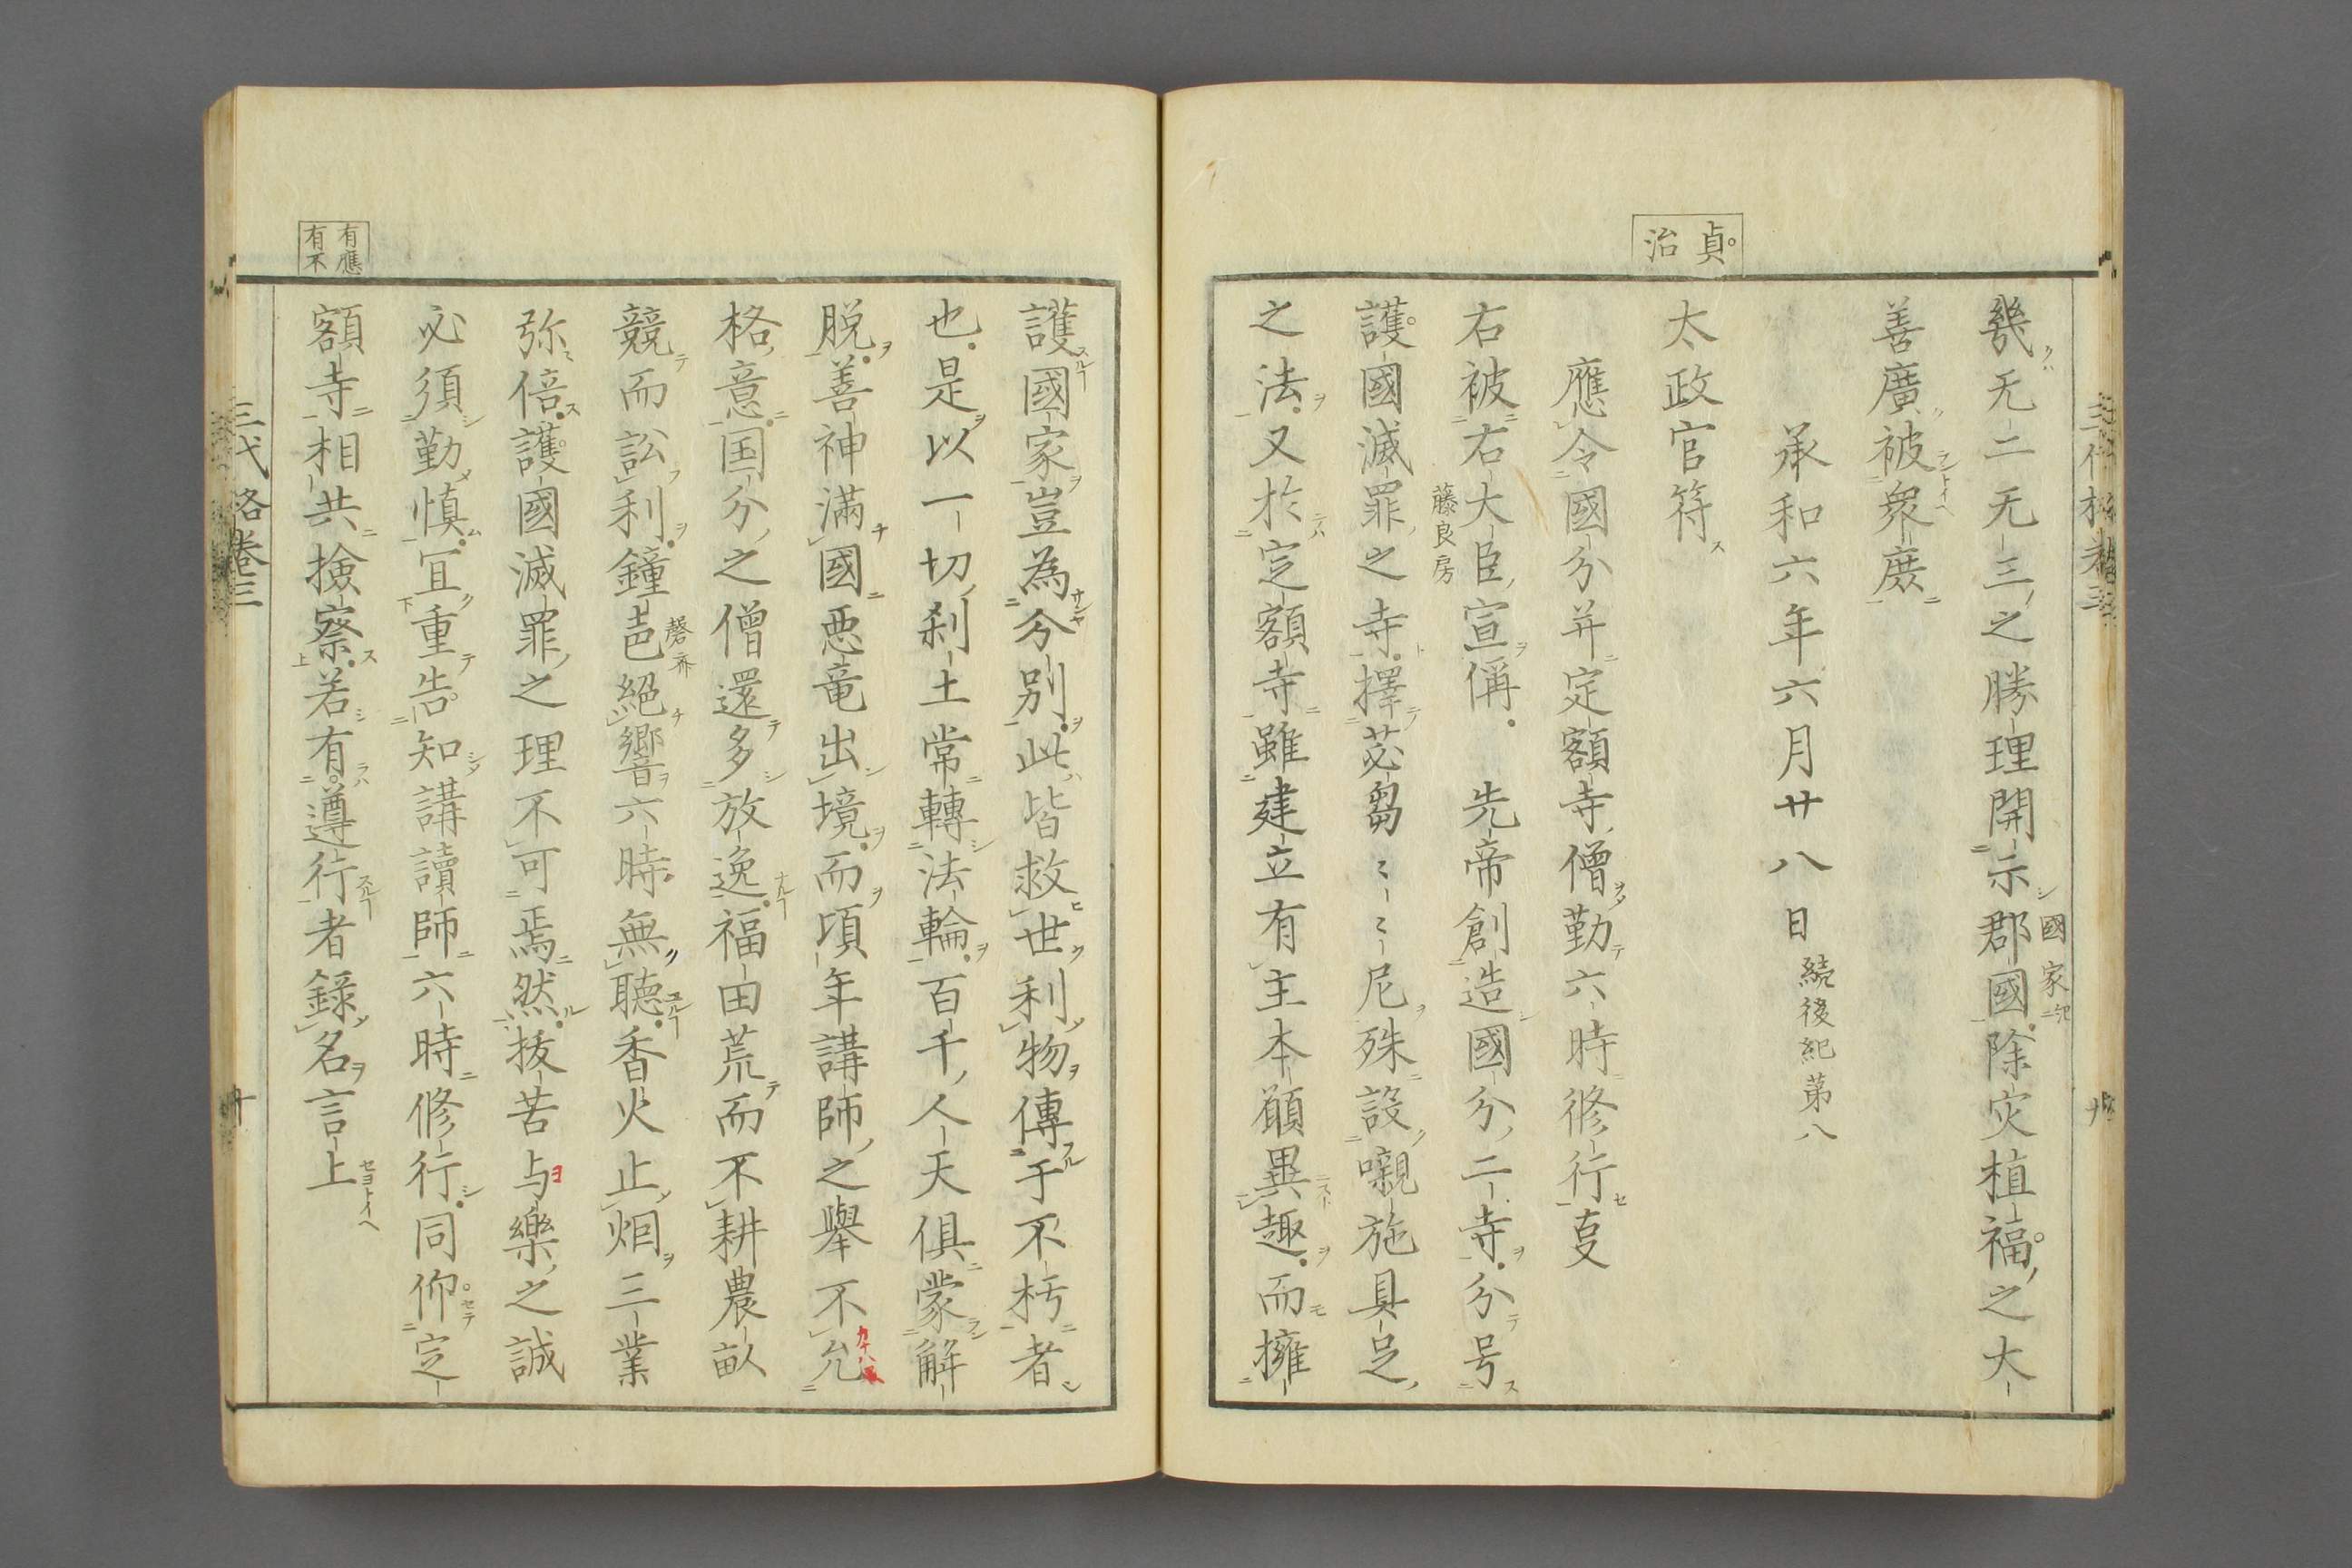 貞
治
幾无二无三之勝理開示郡國除灾植福之大
國家
善廣被衆庶
承和六年六月廿八日 続後紀第八
太政官符
應令國分并定額寺僧勤六時修行㕝
右被右大臣宣偁先帝創造國分二寺分号
藤良房
護國滅罪之寺擇苾蒭〻〻尼殊設嚫施具足
之法又於定額寺雖建立有主本願異趣而擁
護國家豈為分別此皆救世利物傳于不朽者
也是以一切刹土常轉法輪百千人天俱蒙解
脱善神満國悪竜出境而頃年講師之擧不允
格意国分之僧還多放逸福田荒而不耕農畝
競而訟利鐘㐫絕響六時無聽香火止烟三業
磬
弥倍護國滅罪之理不可焉然抜苦与樂之誠
必須勤慎冝重告知講讀師六時修行同仰定
額寺相共撿察若有遵行者錄名言上
有應
有不
三代格巻三
十